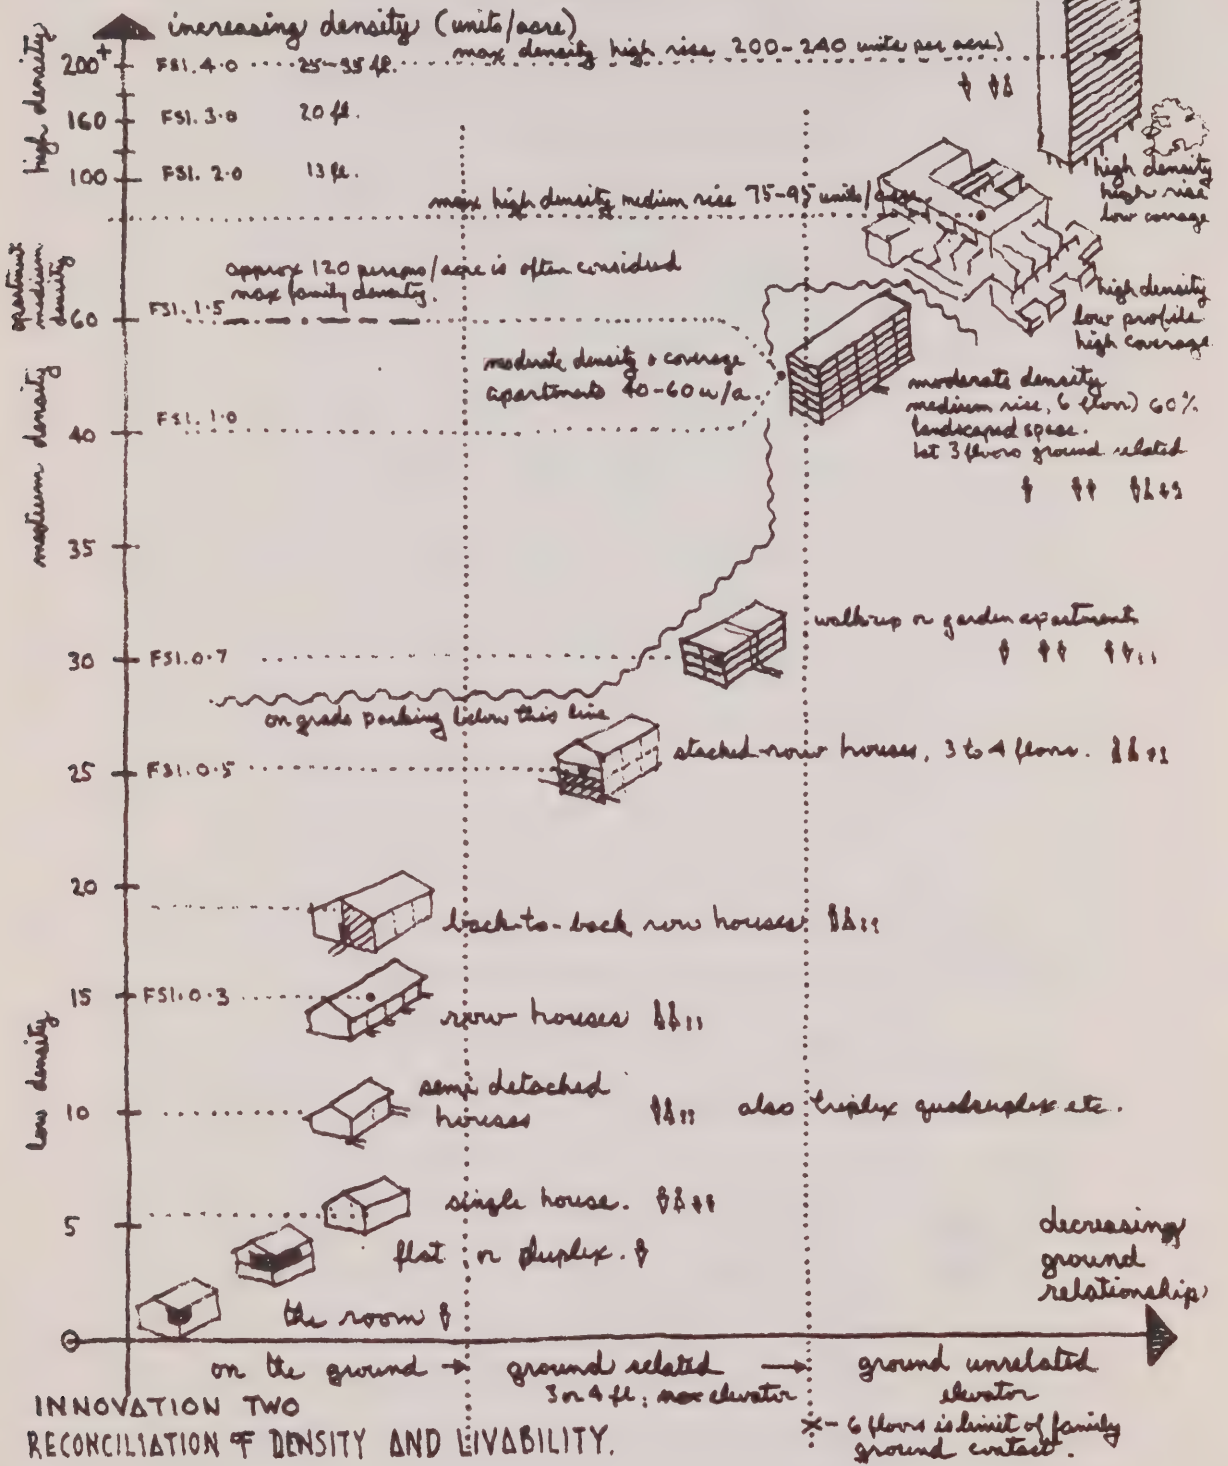 increasing density (units/acre)
max density high rise 200-240 units per acre)
high density
200+
FSI.4.0
25-35 fl.
160
FSI.3.0
20 fl.
100
FSI.2.0
13 fl.
high density
high rise
low coverage
max high density medium rise 75-95 units/acre
apartment
medium
density
approx 120 persons/acre is often considered
max family density.
FSI.1.5
60
high density
low profile
high coverage
moderate density & coverage
apartments 40-60 u/a.
moderate density
medium rise, 6 floors) 60%
landscaped space.
1st 3 floors ground related
FSI.1.0
40
medium density
35
walk-up or garden apartments
30
FSI.0.7
on grade parking below this line
stacked row houses, 3 to 4 floors.
25
FSI.0.5
20
back-to-back row houses
15
FSI.0.3
row houses
low density
semi detached
houses
also triplex quadruplex etc.
10
single house.
5
flat or duplex.
decreasing
ground
relationship
the room
0
on the ground
ground related
ground unrelated
3 or 4 fl: max elevator
elevator
INNOVATION TWO
x- 6 floors is limit of family
ground contact.
RECONCILIATION OF DENSITY AND LIVABILITY.